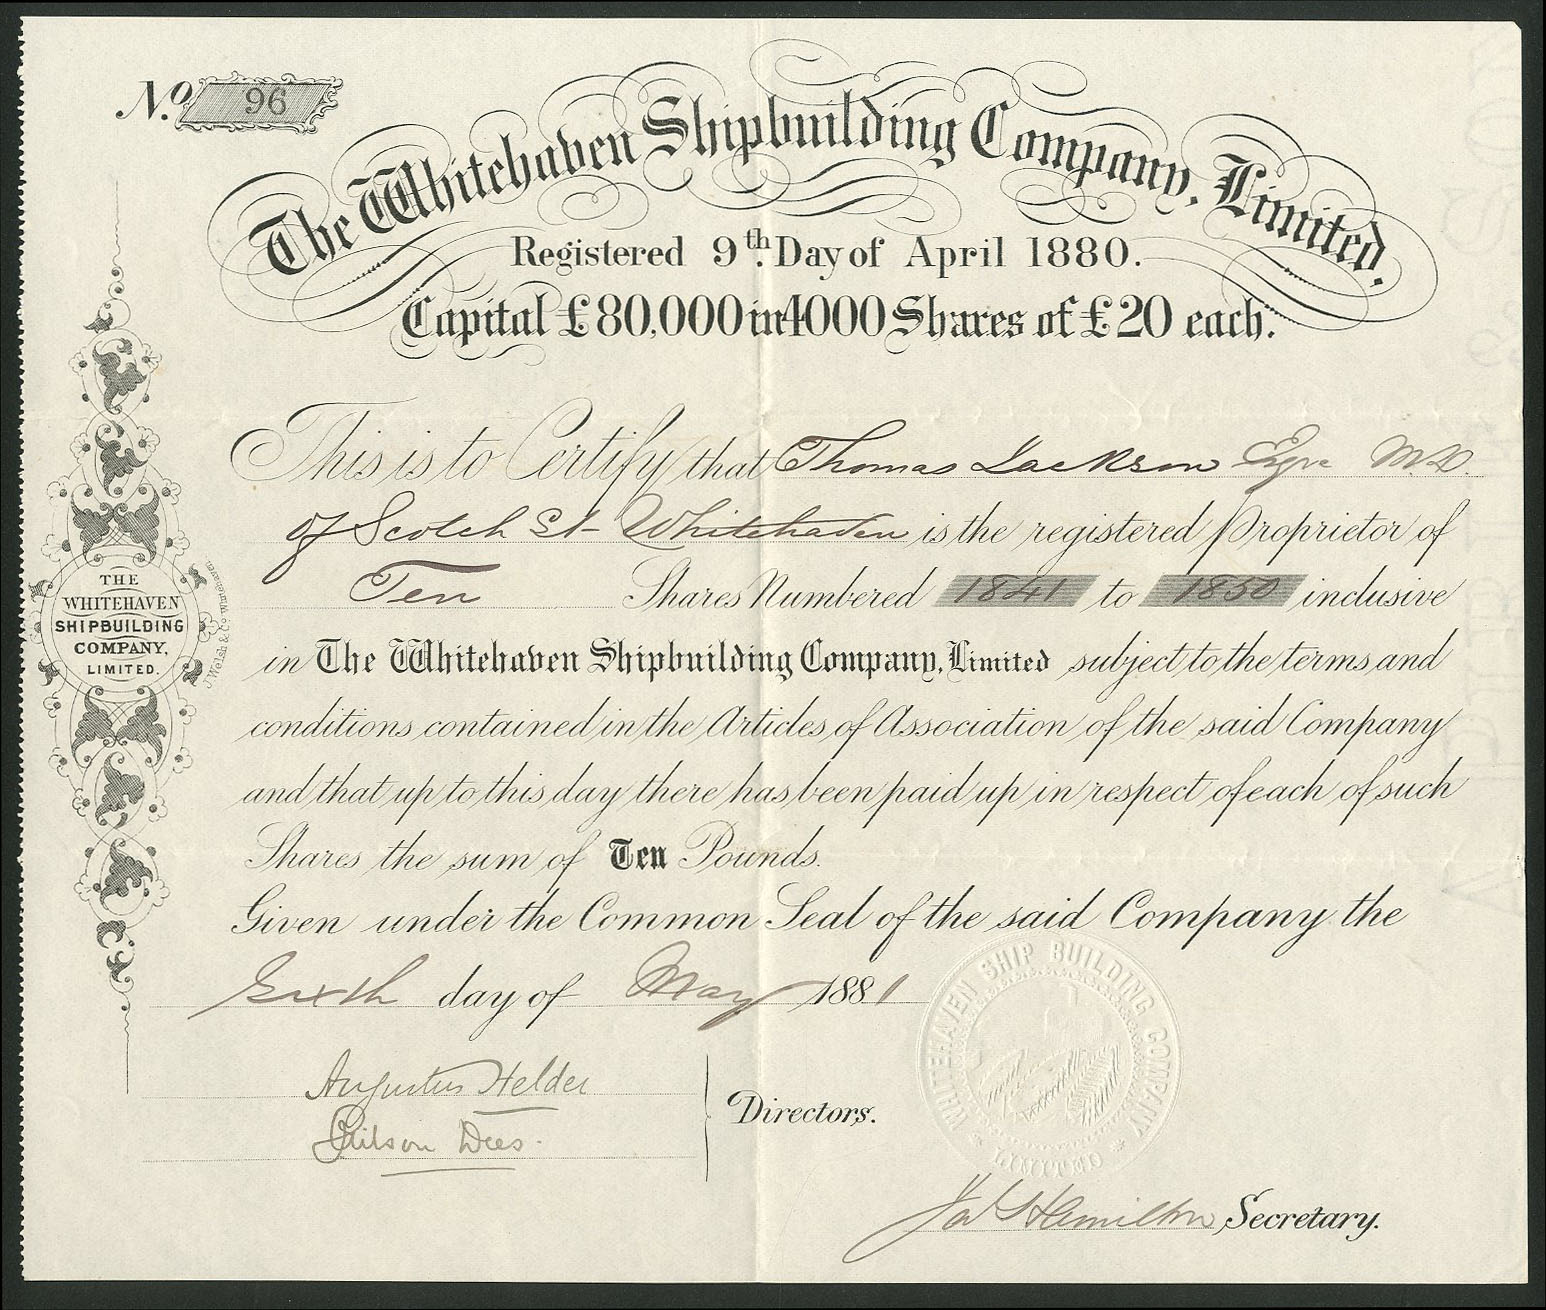 No. 96
The Whitehaven Shipbuilding Company, Limited.
Registered 9th. Day of April 1880.
Capital £80,000 in 4000 Shares of £20 each.
This is to Certify that Thomas Jackson Esqre M.D.
of Scotch St- Whitehaven is the registered Proprietor of
Ten Shares Numbered 1841 to 1850 inclusive
in The Whitehaven Shipbuilding Company, Limited subject to the terms and
conditions contained in the Articles of Association of the said Company
and that up to this day there has been paid up in respect of each of such
Shares the sum of Ten Pounds.
Given under the Common Seal of the said Company the
Sixth day of May 1881
Augustus Helder
Dees.
Directors.
Hamilton Secretary.
THE
WHITEHAVEN
SHIPBUILDING
COMPANY,
LIMITED.
J. Welsh & Co. Whitehaven
WHITEHAVEN SHIP BUILDING COMPANY
LIMITED